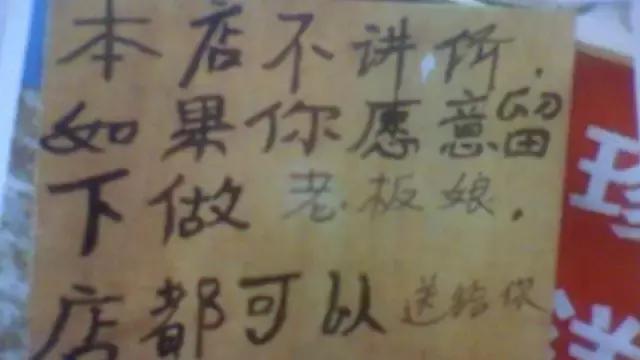 本店不讲价.
如果你愿意留
下做老板娘.
店都可以送给你